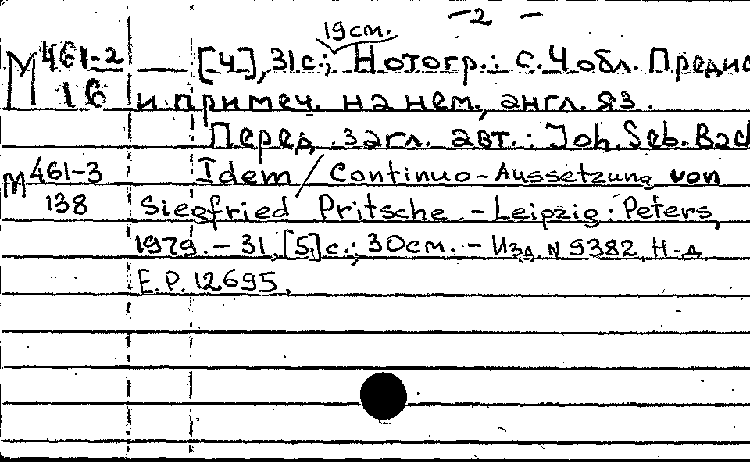 – 2 –
19 см.
М 461-2 — [4], 31 с.; Нотогр.: с. 4 обл. Предис
16 и примеч. на нем., англ. яз.
Перед загл. авт.: Joh. Seb. Bach
М 461-3 Idem / Continuo-Aussetzung von
138 Siegfried Pritsche. – Leipzig: Peters,
1979. – 31, [5] с.; 30 см. – Изд. N 9382 Н-д
E.P. 12695.